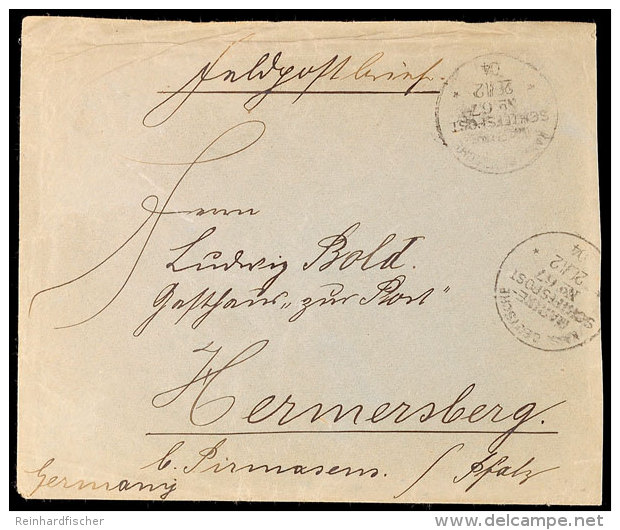 Feldpostbrief.
KAIS. DEUTSCHE
MARINE-
SCHIFFSPOST
No 67
21/12
04
Herrn
Ludwig Bold.
Gasthaus „zur Post"
Hermersberg.
b. Pirmasens. / Pfalz
Germany
KAIS. DEUTSCHE
MARINE-
SCHIFFSPOST
No 67
21/12
04
Reinhardfischer
delcampe.net